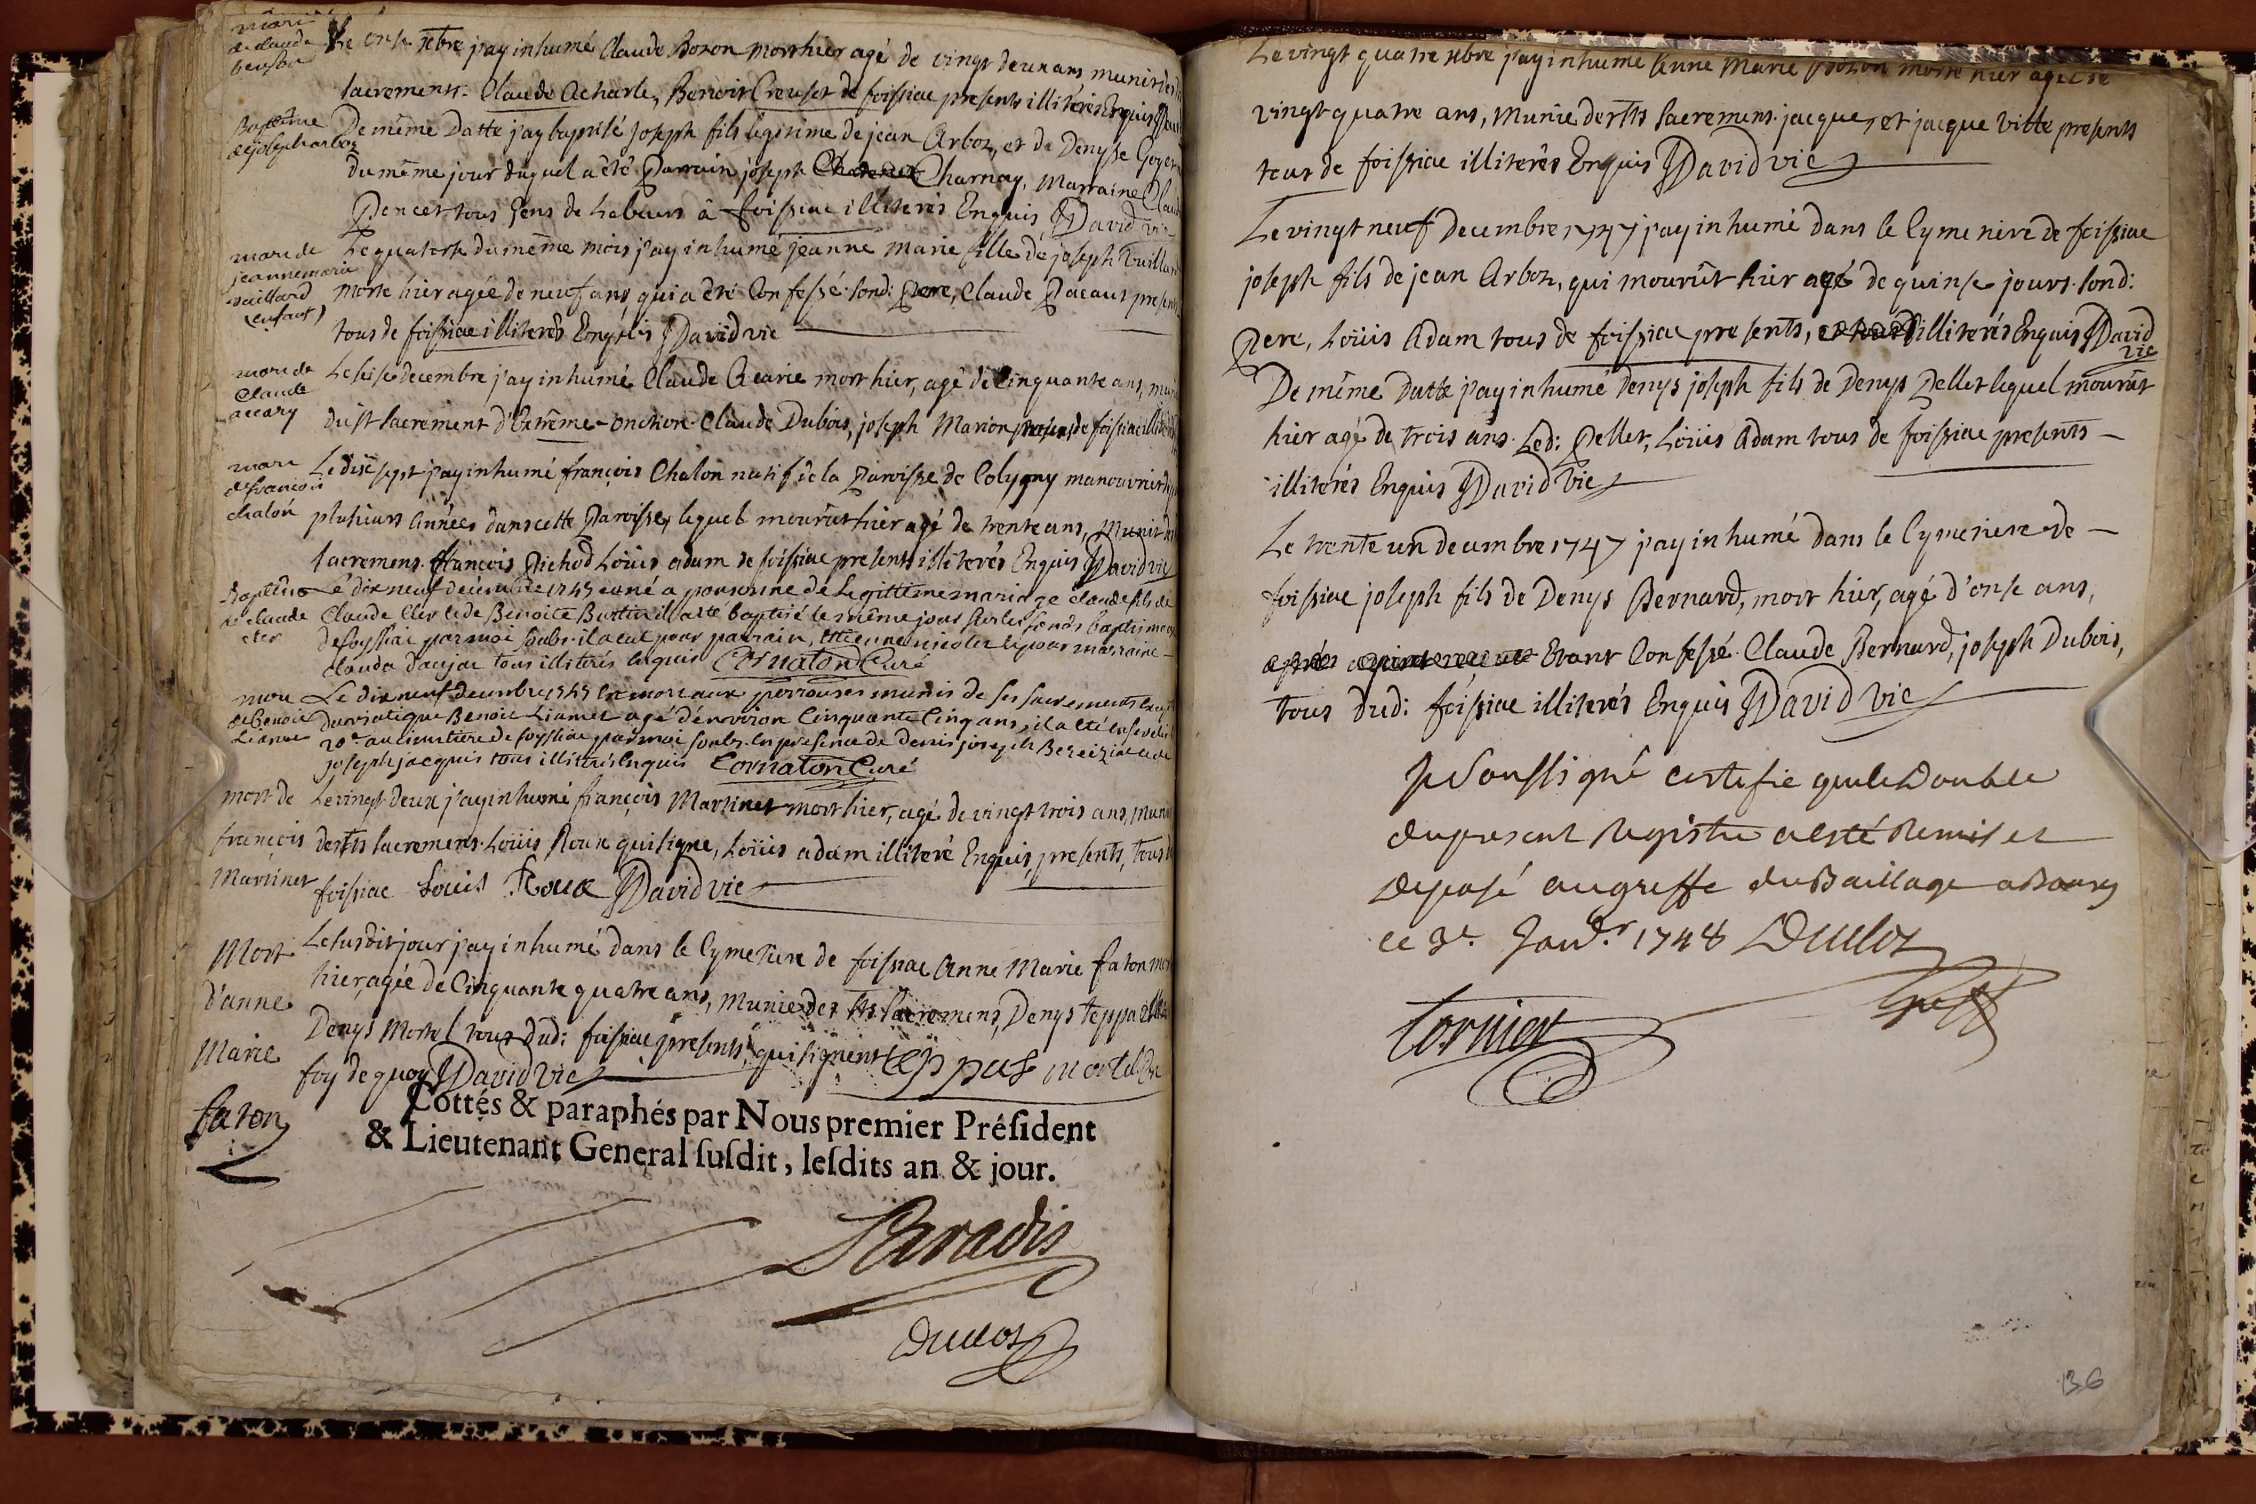 mort
de claude
Le onze xbre j'ay inhumé Claude Bozon mort hier agé de vingt deux ans munir des
sacrements. Claude Acharle, Benoit Creuset de foissiac presents illiterés Enquis
Baptême
de joseph arboz
De même Datte j'ay baptisé joseph fils legitime de jean Arboz, et de Denyse Goyer
du même jour duquel a été Parrain joseph Charnay, Marraine Claud
Poncet tous Gens de Labeurs à foissiac illiterés Enquis, David vic
mort de
jeanne marie
vuillard
(enfant)
Le quatorse du même mois j'ay inhumé jeanne marie fille de joseph Vuillard
morte hier agée de neuf ans qui a été Confessé. Sond: Pere, Claude Pacaut presents
tous de foissiac illiterés Enquis David vic
mort de
Claude
accary
Le seise decembre j'ay inhumé Claude Acarie mort hier, agé de Cinquante ans, muni
du st sacrement d'Extrême-onction. Claude Dubois, joseph Marion presens, de foissiac illiterés
mort
de françois
chalon
Le dix sept j'ay inhumé françois Chalon natif de la Paroisse de Colygny manouvrier
plusieurs Années dans cette Paroisse, lequel mourut hier agé de trente ans, Munit des
sacremens. françois Pichod Loüis adam de foissiac presents illiterés Enquis David vic
Baptême
de claude
cler
Le dix neuf décembre 1747 est né a personne de Legittime mariage claude fils de
Claude Cler et de Benoite Buttin il a esté baptisé le même jour sur les fonds baptismaux
de foyssiac par moi soubs. il a eut pour parrain, Etienne et pour marraine
claude daujac tous illiterés Enquis Cornaton Curé
mort
de Benoit
Liamet
Le dix neuf decembre 1747 Est mort aux perrouses munis de ses sacrements
du viatique Benoit Liamet agé d'environ Cinquante Cinq ans, il a été enseveli
20e au cimetiere de foyssiac par moi soubs. En presence de denis joseph
joseph jacquis tous illiterés Enquis Cornaton Curé
mort de
françois
Martinet
Le vingt deux j'ay inhumé françois Martinet mort hier, agé de vingt trois ans, muni
des sts sacremens. Loüis Roux qui signe, Loüis adam illiteré Enquis, presents, tous de
foissiac Louis Roux David vic
Mort
d'anne
Marie
faton
Le susdit jour j'ay inhumé dans le Cymetiere de foissiac Anne Marie faton mor
hier, agée de Cinquante quatre ans, Munie des sts Sacremens, Denys Teppa
Denys Mortel tous dud: foissiac presents, qui signent teppas mortel
foy de quoy David vic
Cottés & paraphés par Nous premier Préſident
& Lieutenant General ſuſdit, leſdits an & jour.
Paradis
Duclos
Le vingt quatre xbre j'ay inhumé Anne Marie Bozon morte hier agée de
vingt quatre ans, Munie des sts sacremens. jacque, et jacque Vitte presents
tous de foissiac illiterés Enquis David vic
Le vingt neuf Decembre 1747 j'ay inhumé dans le Cymetiere de foissiac
joseph fils de jean Arboz, qui mourût hier agé de quinse jours. Sond:
Pere, Loüis Adam tous de foissiac presents, illiterés Enquis David
vic
De même Datte j'ay inhumé Denys joseph fils de Denys Pellet lequel mourut
hier agé de trois ans. Led: Pellet, Loüis Adam tous de foissiac presents
illiterés Enquis David vic
Le trente un decembre 1747 j'ay inhumé dans le Cymetiere de
foissiac joseph fils de Denys Bernard, mort hier, agé d'onse ans,
Etant Confessé. Claude Bernard, joseph Dubois,
tous dud: foissiac illiterés Enquis David vic
Je Soussigné certifie que le Double
du present Registre a esté Remis et
deposé au greffe du Baillage a Bourg
ce 3e. Janvr. 1748 Duclos
Greff
Tornier
136